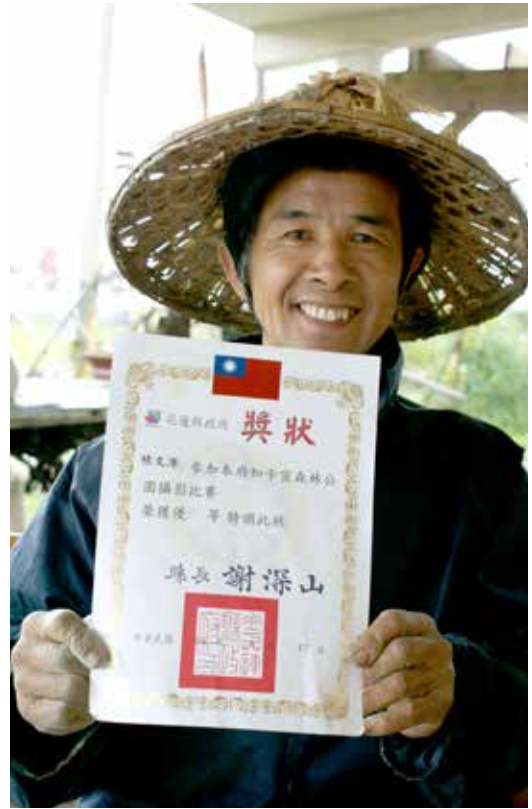 花蓮縣政府 獎狀
參加本府知卡宣森林公
園攝影比賽
榮獲優 等特頒此狀
縣長 謝深山
中華民國 17 日